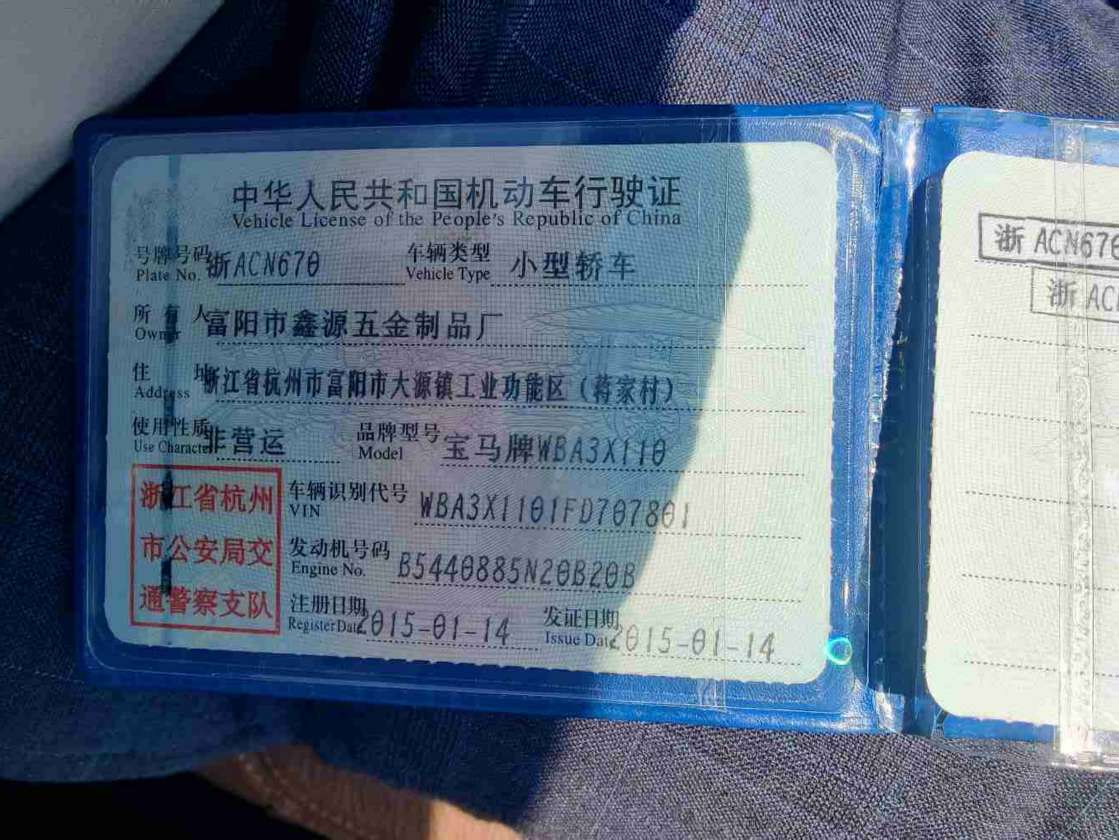 中华人民共和国机动车行驶证
Vehicle License of the People's Republic of China
号牌号码 浙ACN670 车辆类型 小型轿车
Plate No. Vehicle Type
所有人 富阳市鑫源五金制品厂
Owner
住址 浙江省杭州市富阳市大源镇工业功能区（蒋家村）
Address
使用性质 非营运 品牌型号 宝马牌WBA3X110
Use Character Model
浙江省杭州
市公安局交
通警察支队
车辆识别代号 WBA3X1101FD707801
VIN
发动机号码 B5440885N20B20B
Engine No.
注册日期 2015-01-14 发证日期 2015-01-14
Register Date Issue Date
浙ACN670
浙AC